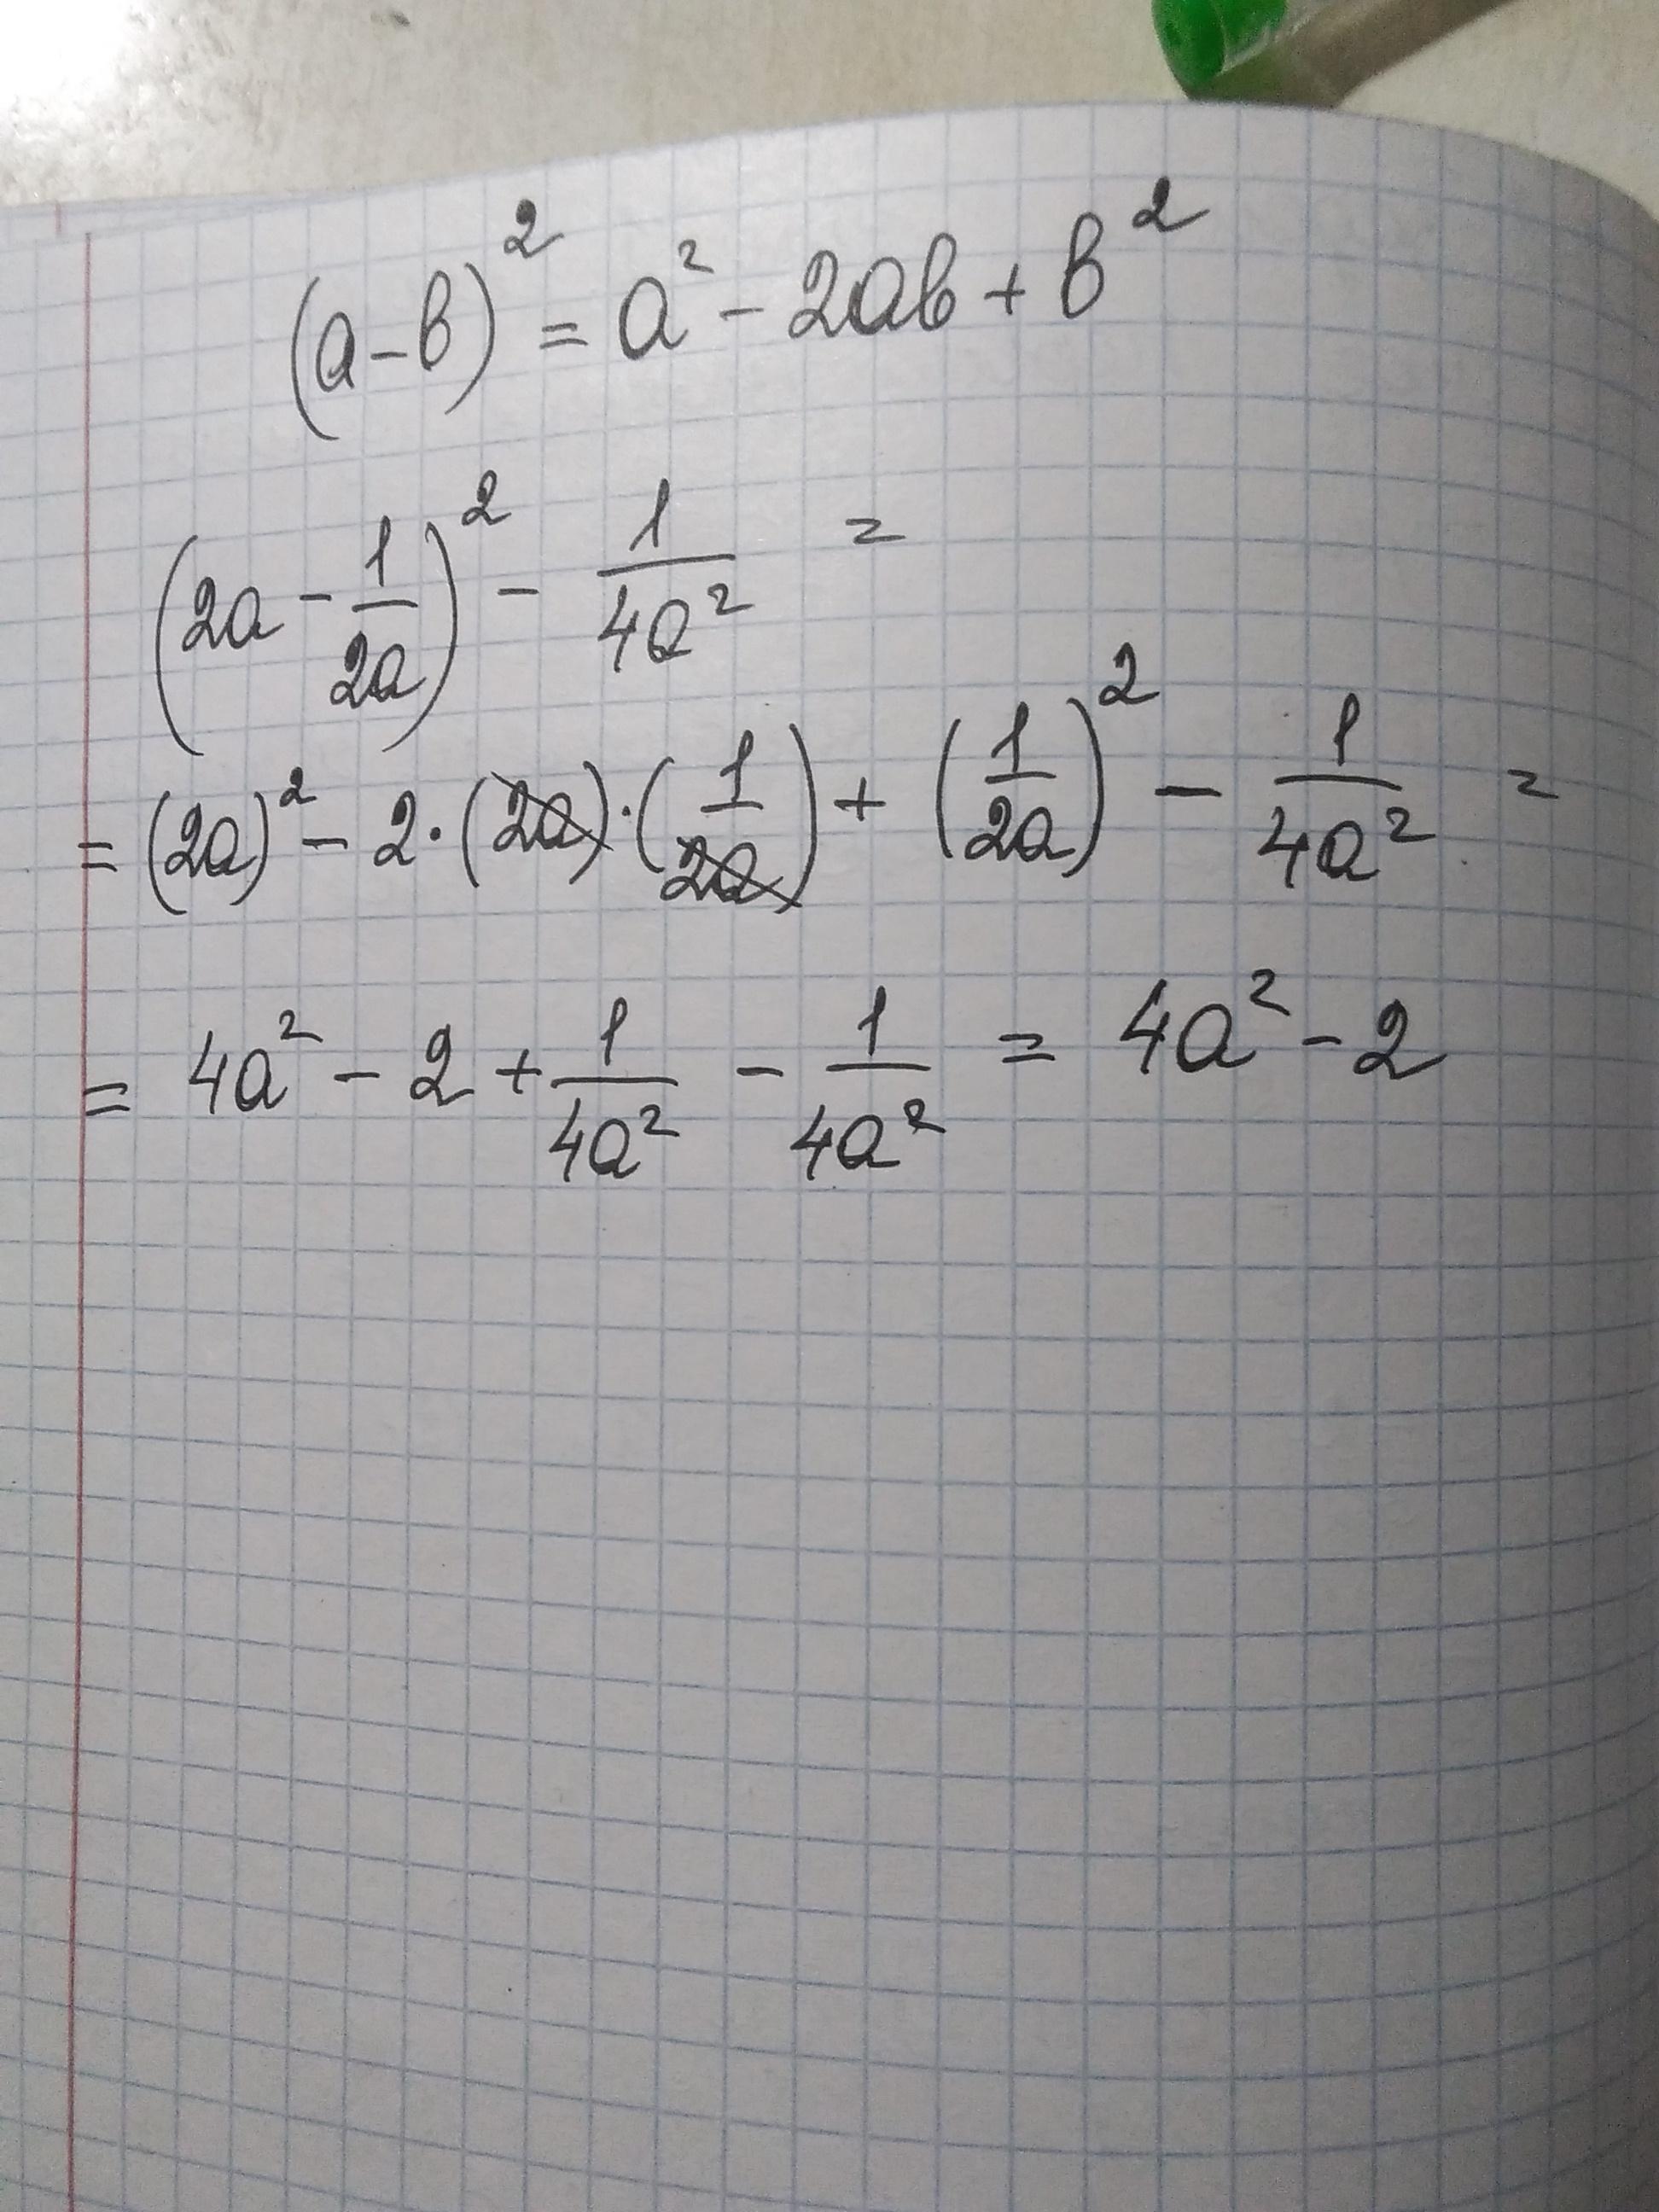 (a-b)² = a² - 2ab + b²
(2a - 1/2a)² - 1/4a² =
= (2a)² - 2·(2a)·(1/2a) + (1/2a)² - 1/4a² =
= 4a² - 2 + 1/4a² - 1/4a² = 4a² - 2